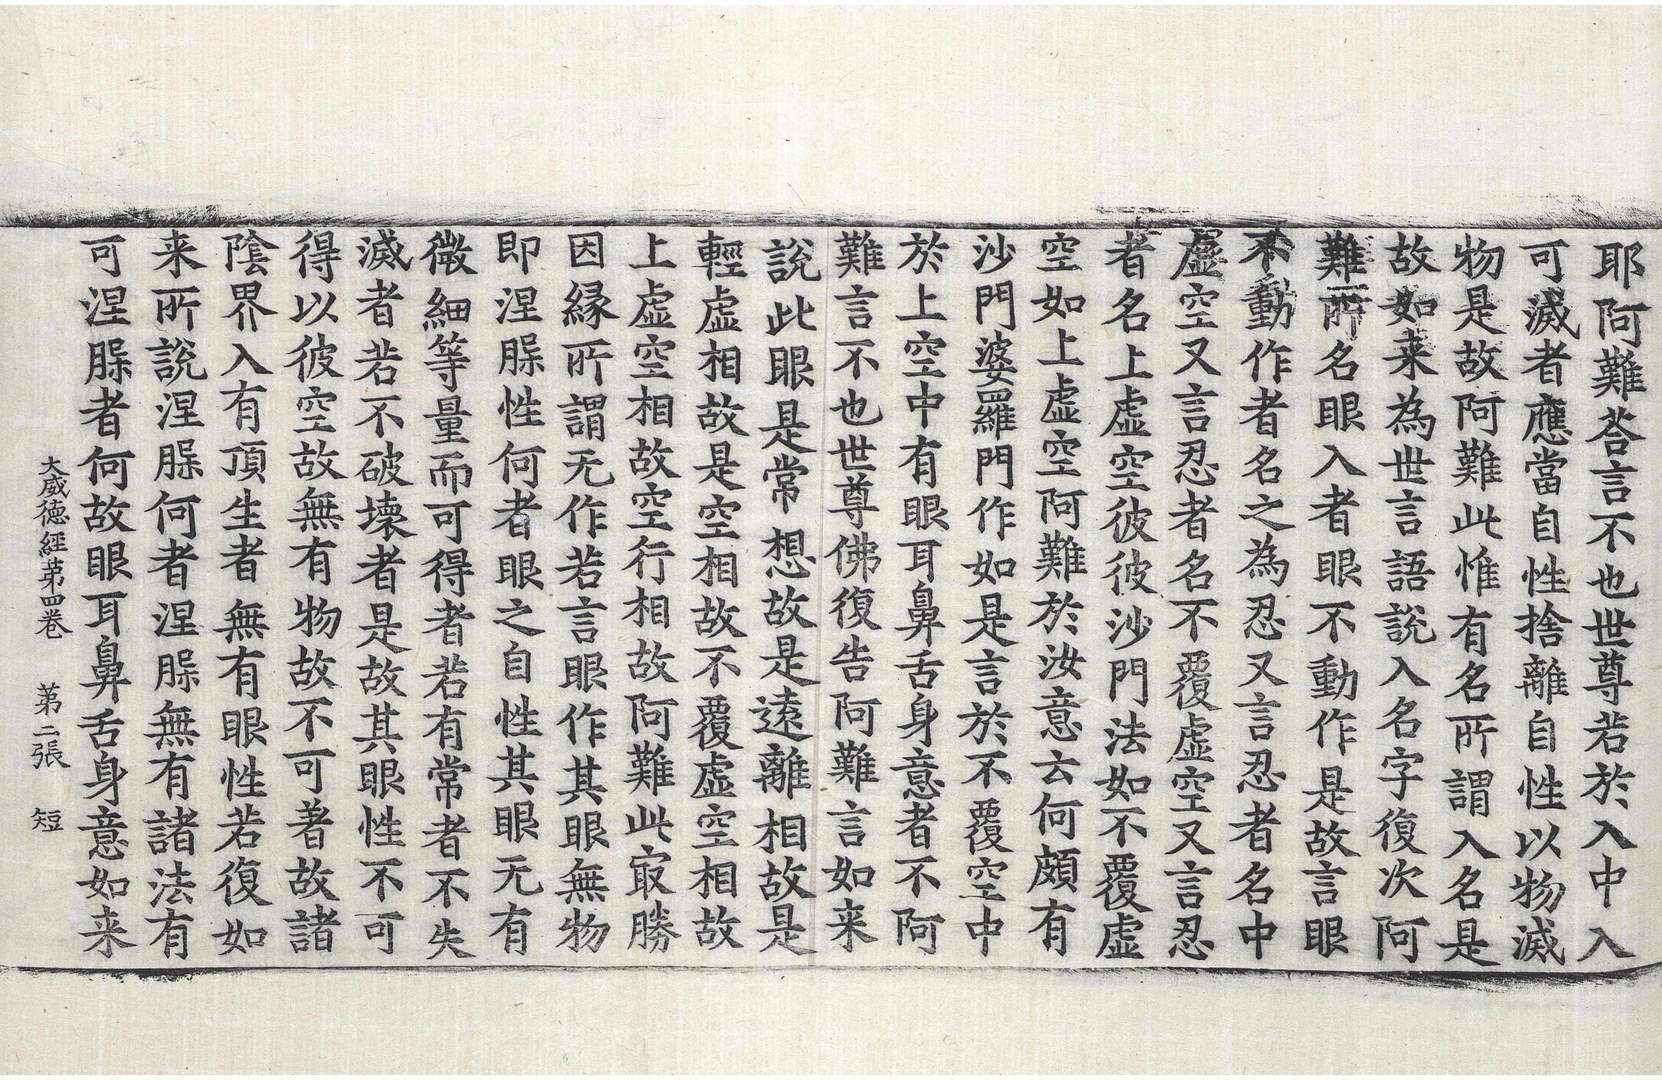 耶阿難荅言不也世尊若於入中入
可滅者應當自性捨離自性以物滅
物是故阿難此惟有名所謂入名是
故如来為世言語說入名字復次阿
難所名眼入者眼不動作是故言眼
不動作者名之為忍又言忍者名中
虛空又言忍者名不覆虛空又言忍
者名上虛空彼彼沙門法如不覆虛
空如上虛空阿難於汝意云何頗有
沙門婆羅門作如是言於不覆空中
於上空中有眼耳鼻舌身意者不阿
難言不也世尊佛復告阿難言如来
說此眼是常想故是遠離相故是
輕虛相故是空相故不覆虛空相故
上虛空相故空行相故阿難此㝡勝
因緣所謂无作若言眼作其眼無物
即涅槃性何者眼之自性其眼无有
微細等量而可得者若有常者不失
滅者若不破壞者是故其眼性不可
得以彼空故無有物故不可著故諸
陰界入有頂生者無有眼性若復如
来所說涅槃何者涅槃無有諸法有
可涅槃者何故眼耳鼻舌身意如来
大威德經第四卷　第二張　短